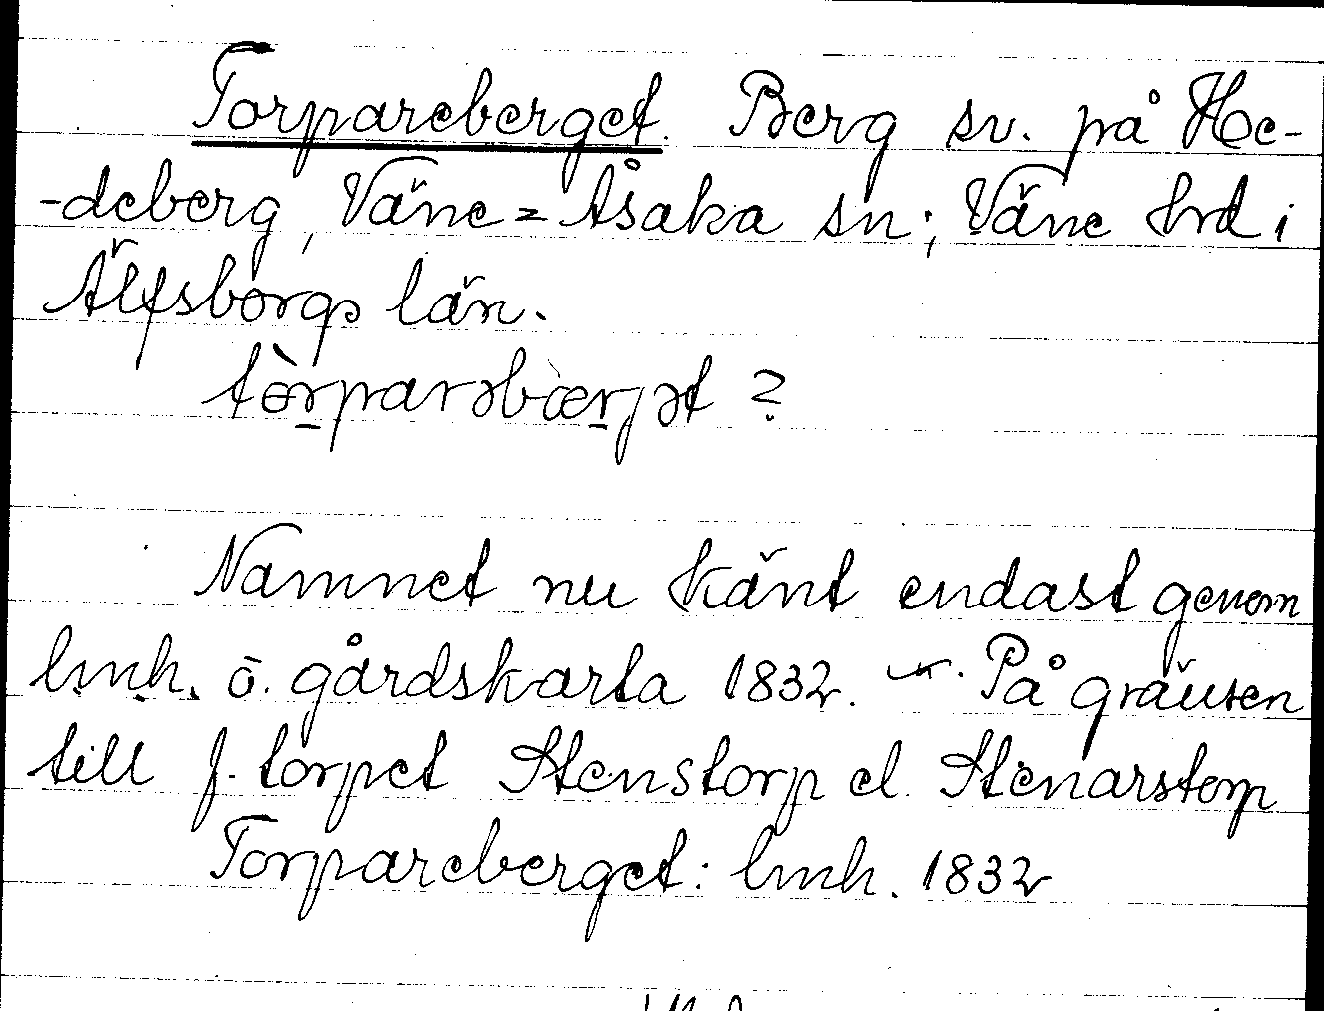 Torpareberget. Berg sv. på He-
-deberg, Väne=Åsaka sn; Väne hrd i
Älfsborgs län.
tòrparəbærjət ?
Namnet nu känt endast genom
lmh. o. gårdskarta 1832. På gränsen
till f. torpet Stenstorp el. Stenarstorp
Torpareberget: lmh. 1832